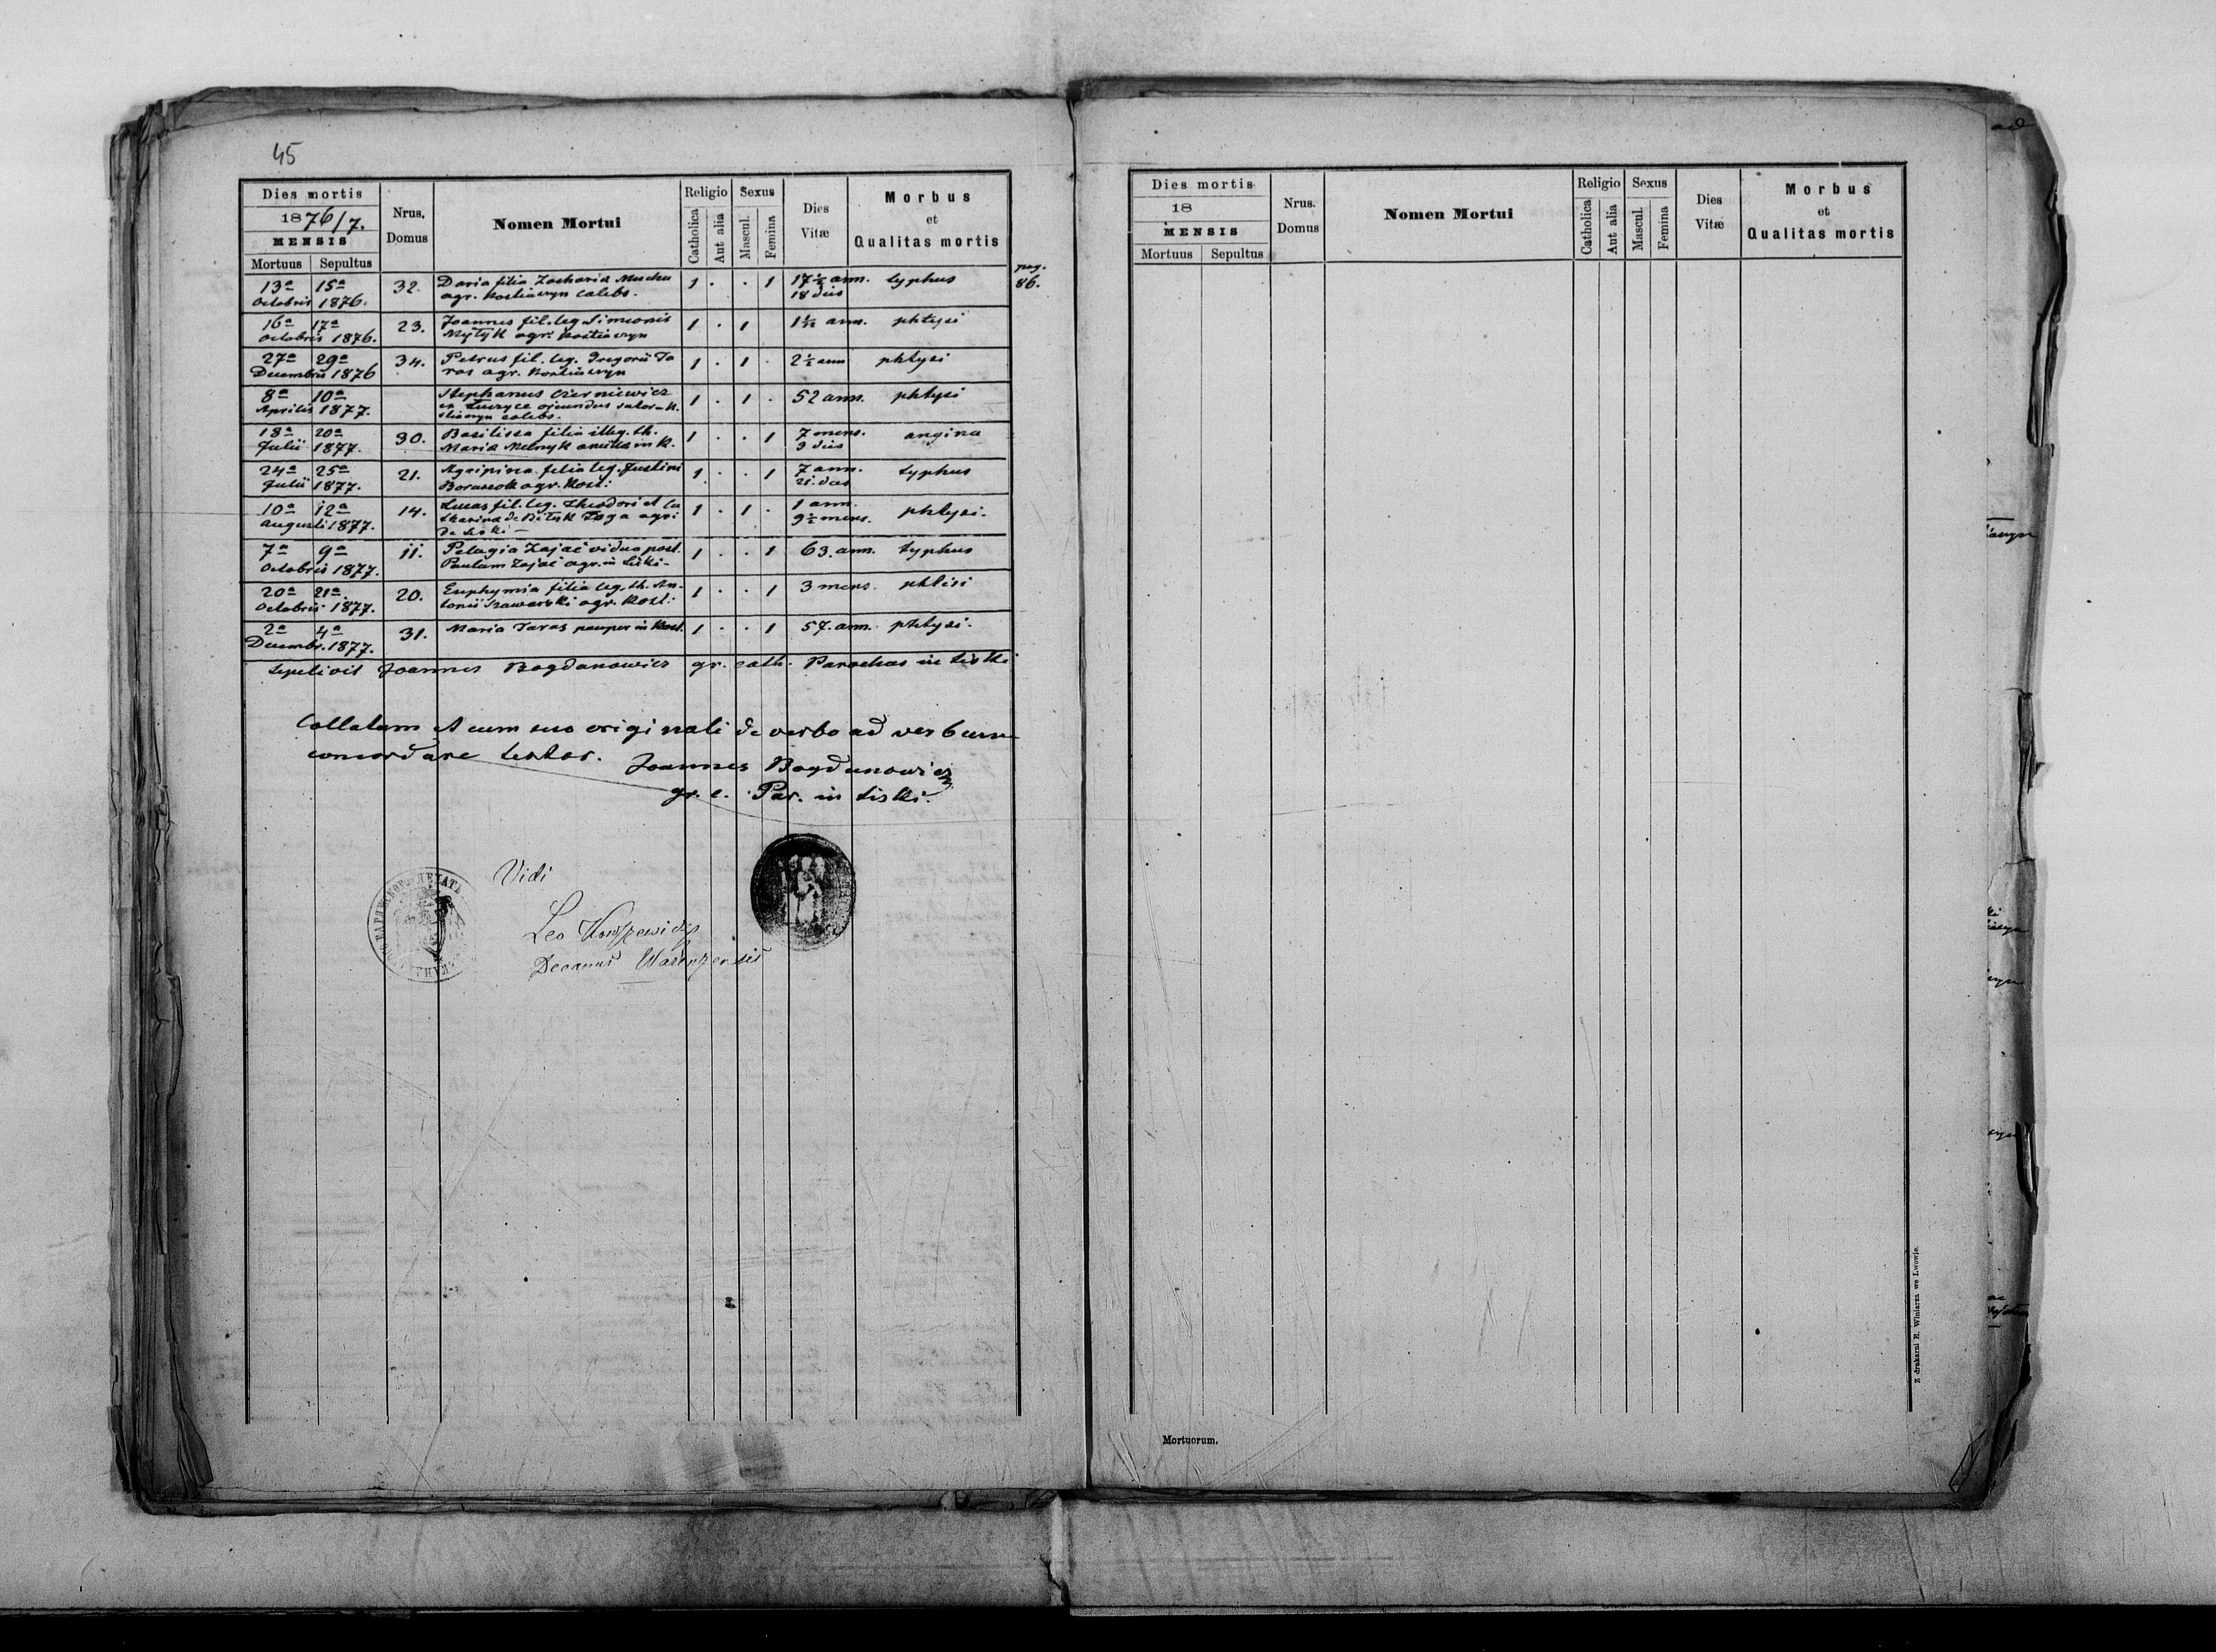 45
Dies mortis
1876/7.
MENSIS
Mortuus Sepultus
Nrus. Domus
Nomen Mortui
Religio
Catholica Aut alia
Sexus
Mascul. Femina
Dies Vitæ
Morbus et Qualitas mortis
pag. 86.
13ª 15ª 32. Daria filia Zachariæ Mucha 1 . . 1 17½ ann. typhus
Octobris 1876. agr. Kostiaszyn calebs. 18 dies
16ª 17ª 23. Joannes fil. leg. Simeonis 1 . 1 ann. phtysi
Octobris 1876. Mytyk agr. Kostiaszyn
27ª 29ª 34. Petrus fil. leg. Gregorii Ta 1 . 1 . 2½ ann phtysi
Decembris 1876 ras agr. Kostiaszyn
8ª 10ª Stephanus Czerniewicz 1 . 1 . 52 ann. phtysi
Aprilis 1877. oriundus sutor
calebs.
18ª 20ª 30. Basilissa filia illeg. th. 1 . . 1 7 mens. angina
Julii 1877. Maria Melnyk ancilla in K. 3 dies
24ª 25ª 21. Agripina filia leg. Justini 1 . . 1 7 ann. typhus
Julii 1877. agr. Kost: 21. dies
10ª 12ª 14. Lucas fil. leg. Theodori et Ca 1 . 1 . 1 ann. phtysi.
Augusti 1877. tharina de Bityk agr: 9½ mens.
de Liski
7ª 9ª 11. Pelagia Zając vidua post. 1 . . 1 63. ann. typhus
Octobris 1877. Paulum Zając agr. in Liski
20ª 21ª 20. Euphymia filia leg. th. An- 1 . . 1 3 mens. phtisi
Octobris 1877. tonii Szawarski agr. Kost:
2ª 4ª 31. Maria Taras pauper in Kost. 1 . . 1 57. ann. phtysi.
Decembr. 1877.
Sepelivit Joannes Bogdanowicz gr. cath. Parochus in Liski
Collatum et cum suo originali de verbo ad verbum
concordare testor. Joannes Bogdanowicz
gr. c. Par. in Liski.
Vidi
Leo
Decanus Warenzensis
Dies mortis
18
MENSIS
Mortuus Sepultus
Nrus. Domus
Nomen Mortui
Religio
Catholica Aut alia
Sexus
Mascul. Femina
Dies Vitæ
Morbus et Qualitas mortis
Mortuorum.
Z drukarni E. Winiarza we Lwowie.
ad